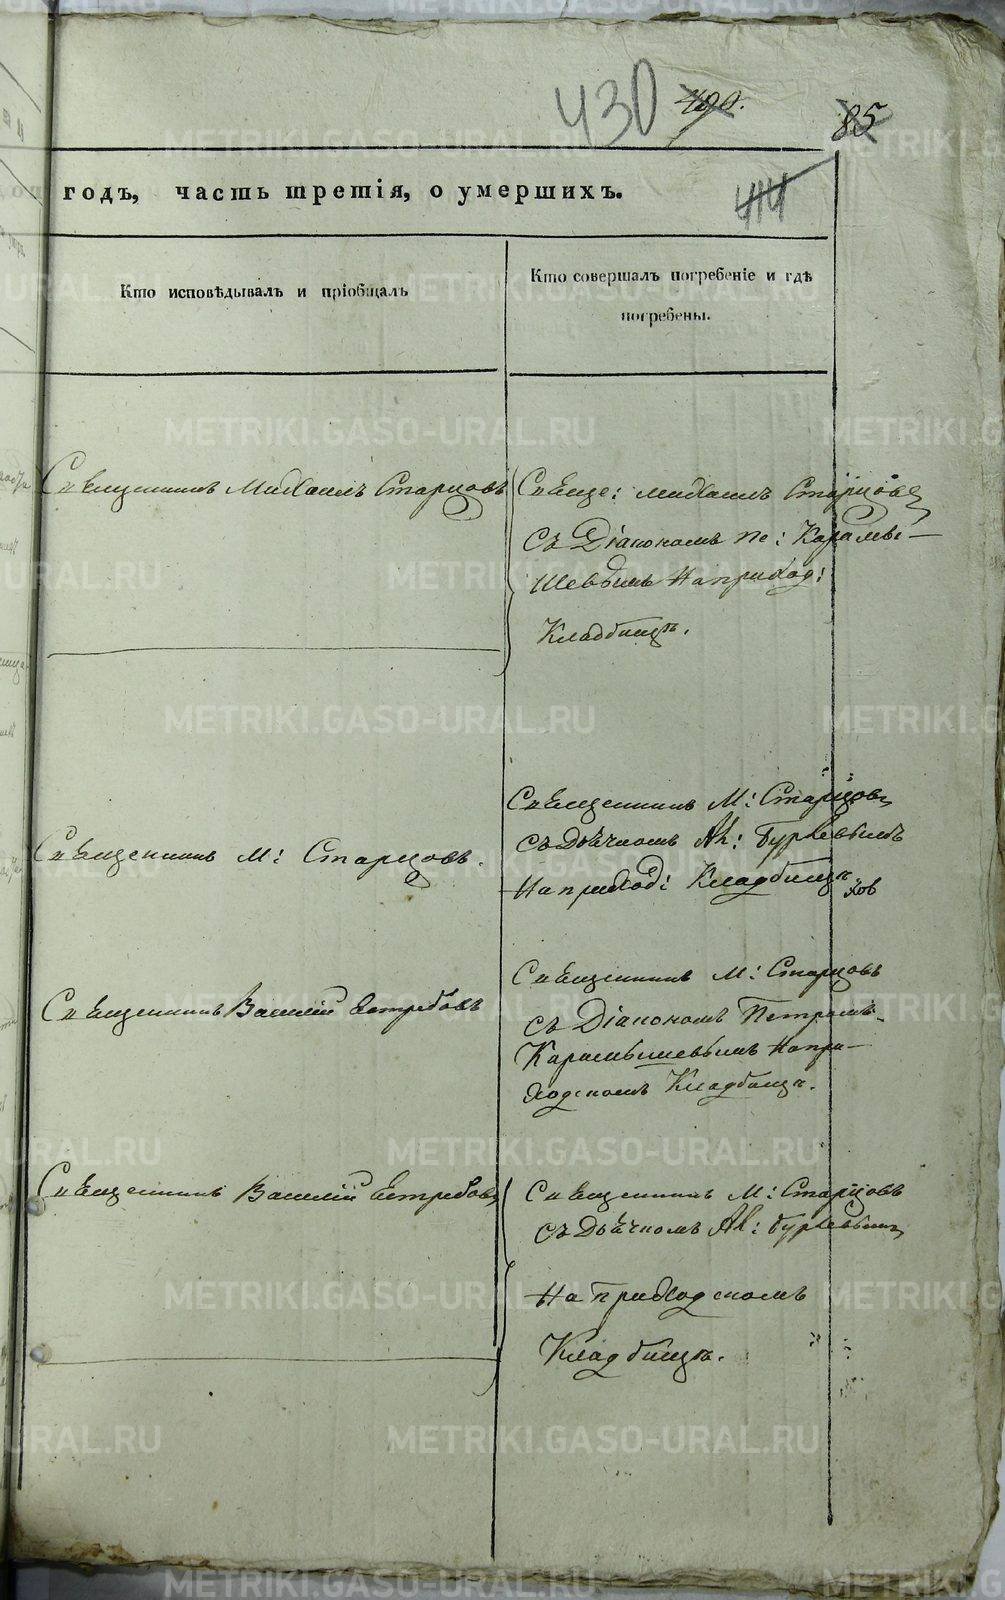 430 400. 85
годъ, часть третія, о умершихъ.
44
Кто исповѣдывалъ и пріобщалъ
Кто совершалъ погребеніе и гдѣ
погребены.
Священникъ Михаилъ Старцовъ
Свяще: Михаилъ Старцовъ
съ Діакономъ Пе: Карамы-
шевымъ на приход:
Кладбищѣ.
Священникъ М: Старцовъ.
Священникъ М: Старцовъ
съ дьячкомъ
на приход: Кладбищѣ
Священникъ Василій Ястребовъ
Священникъ М: Старцовъ
съ Діакономъ Петромъ
Карамышевымъ на при-
ходскомъ Кладбищѣ.
Священникъ Василій Ястребовъ
Священникъ М: Старцовъ
съ Дьячкомъ
на приходскомъ
Кладбищѣ.
METRIKI.GASO-URAL.RU